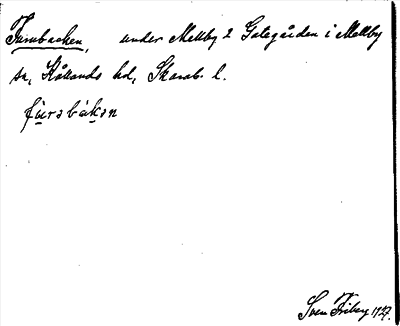 Fursbacken, under Mellby 2 Gategården i Mellby
sn, Kållands hd, Skarab. l.
fursbákən
Sven Friberg 1927.